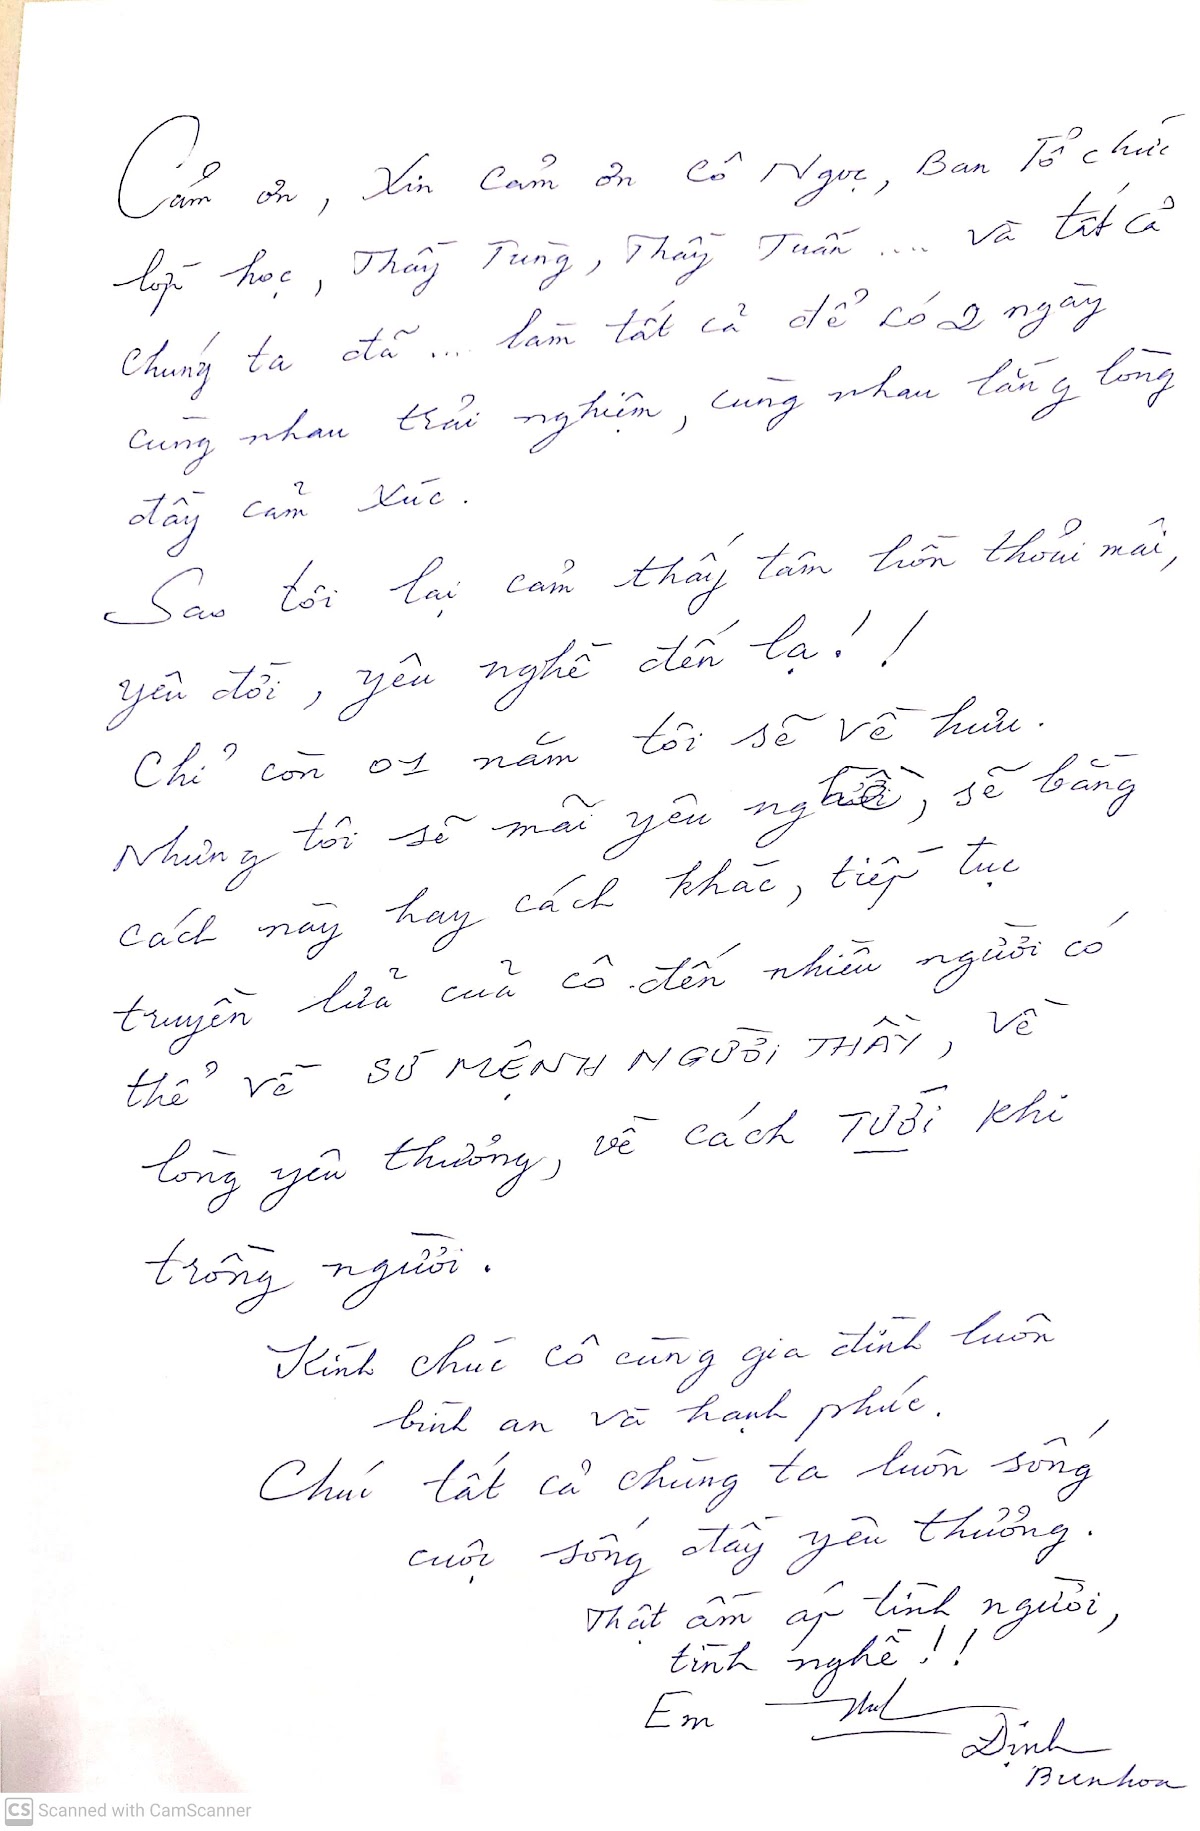 Cảm ơn, Xin cảm ơn cô Ngọc, Ban Tổ chức
lớp học, Thầy Tùng, Thầy Tuấn .... và tất cả
chúng ta đã ... làm tất cả để có 2 ngày
cùng nhau trải nghiệm, cùng nhau lắng lòng
đầy cảm xúc.
Sao tôi lại cảm thấy tâm hồn thoải mái,
yêu đời, yêu nghề đến lạ!!
Chỉ còn 01 năm tôi sẽ về hưu.
Nhưng tôi sẽ mãi yêu nghề, sẽ bằng
cách này hay cách khác, tiếp tục
truyền lửa của cô đến nhiều người có
thể về SỨ MỆNH NGƯỜI THẦY, về
lòng yêu thương, về cách TƯỚI khi
trồng người.
Kính chúc cô cùng gia đình luôn
bình an và hạnh phúc.
Chúc tất cả chúng ta luôn sống
cuộc sống đầy yêu thương.
Thật ấm áp tình người,
tình nghề!!
Em
Định
Bienhoa
CS Scanned with CamScanner